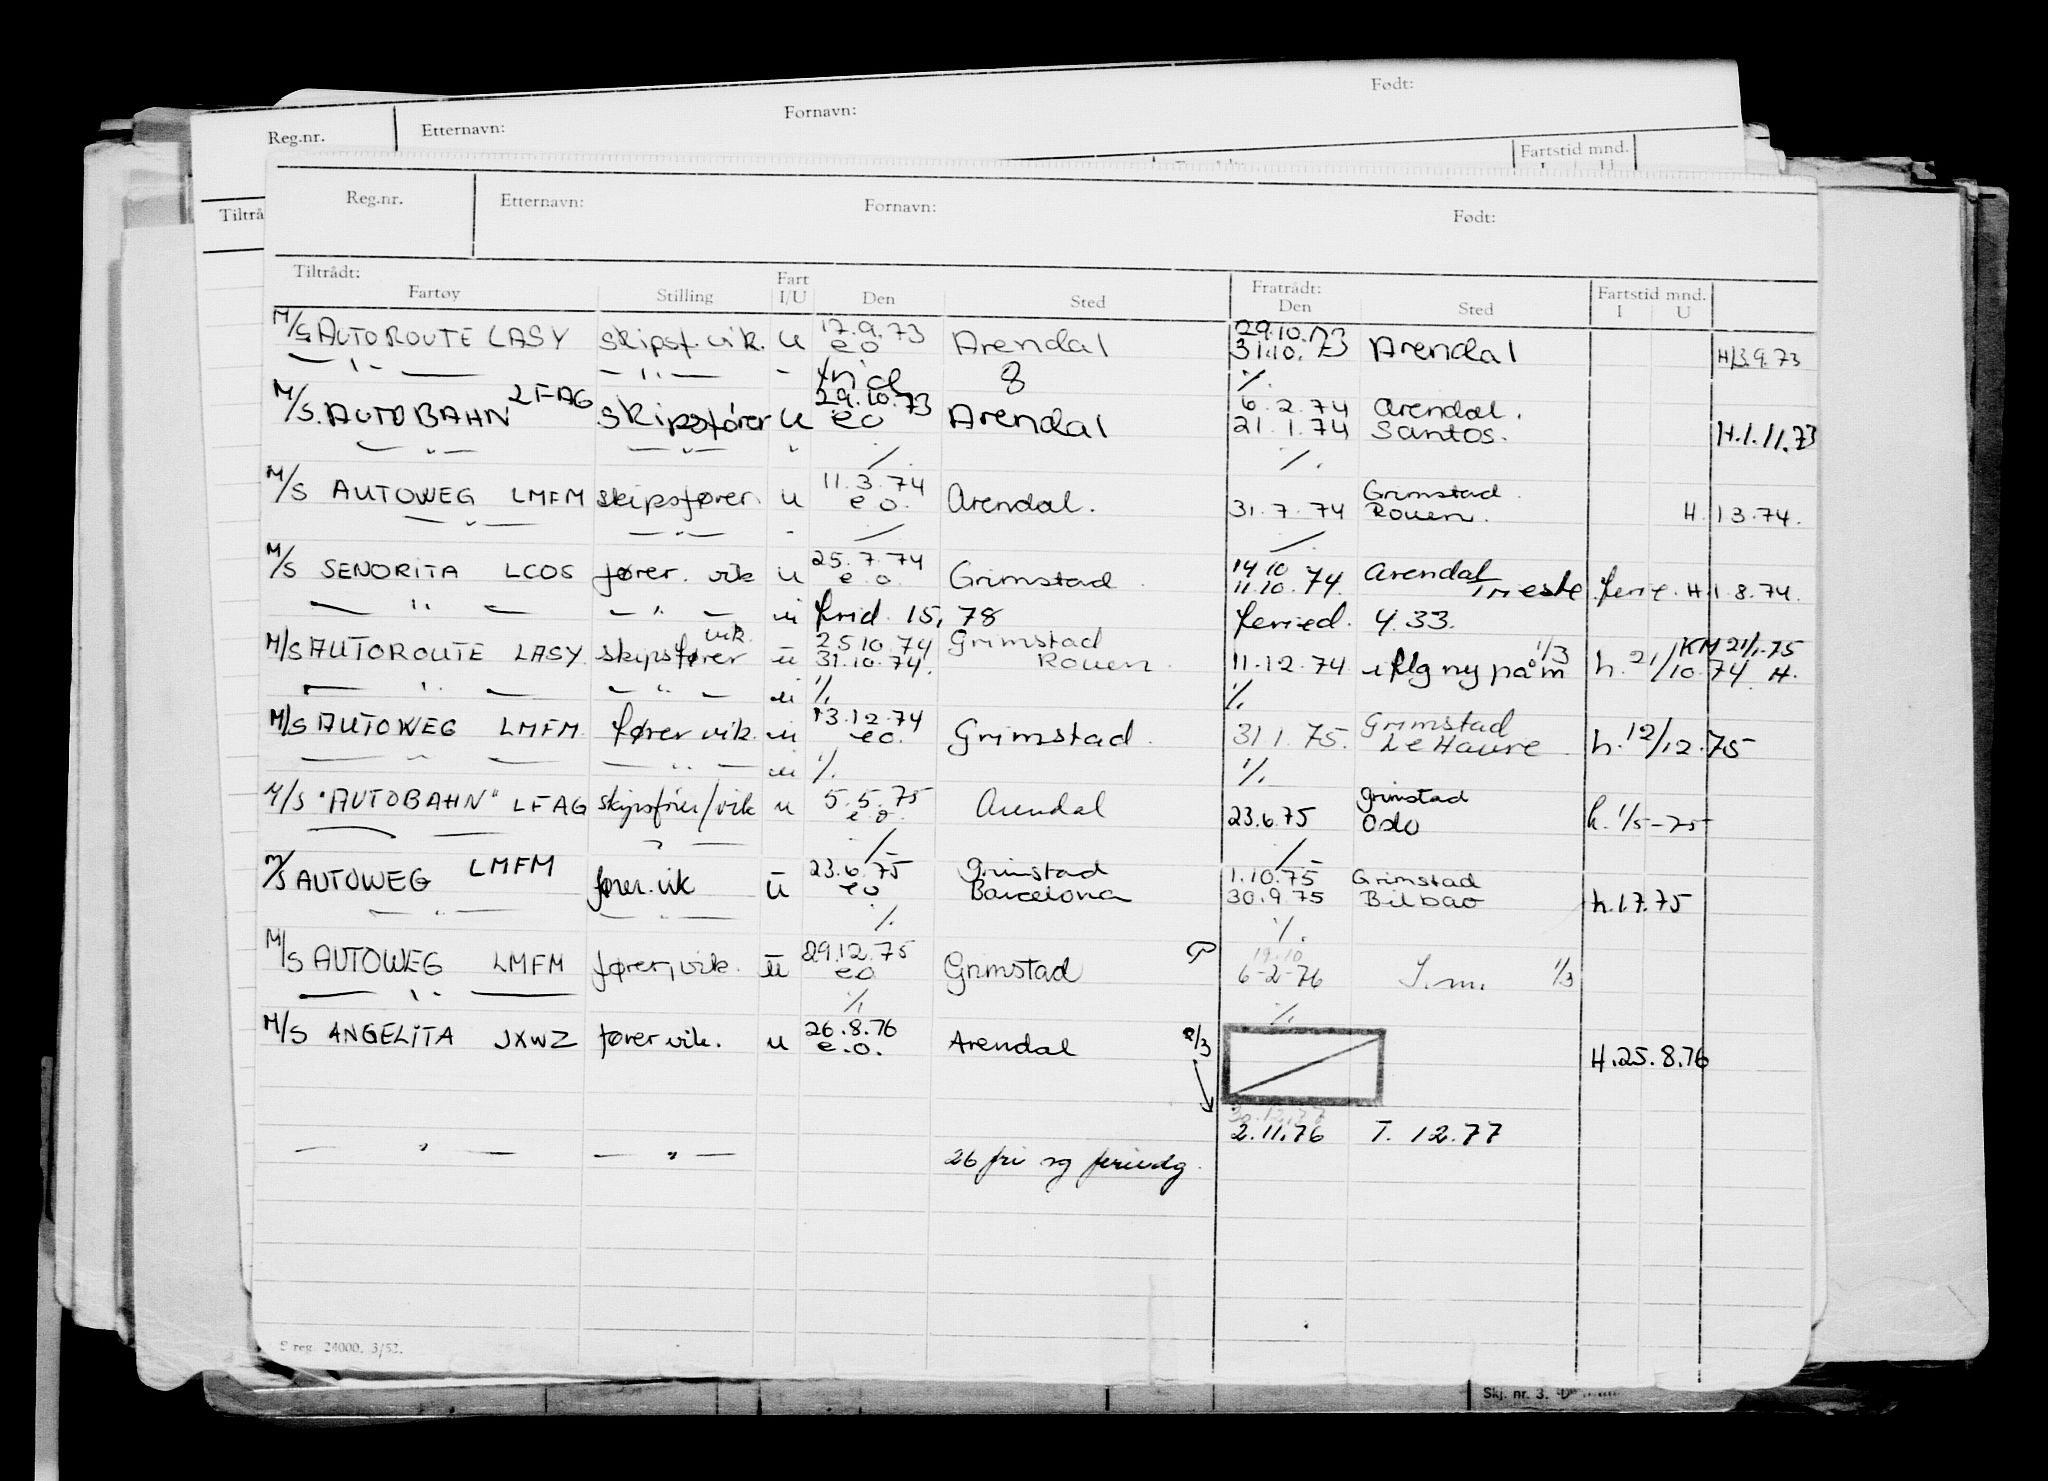 Reg.nr. Etternavn: Fornavn: Født:
Fartstid mnd.
I U
Tiltrå
Reg.nr. Etternavn: Fornavn: Født:
Tiltrådt: Fart Fratrådt: Fartstid mnd.
Fartøy Stilling I/U Den Sted Den Sted I U
M/S AUTOROUTE LASY skipsf. vik. u 17.9.73 Arendal 29.10.73
e o 31.10.73 Arendal H 13.9.73
— " — — " — - frid 8 %
M/S. AUTOBAHN LFAG skipsfører u 29.10.73 Arendal 6.2.74 Arendal.
e o 21.1.74 Santos. H.1.11.73
— " — — " — " /. /.
M/S AUTOWEG LMFM skipsfører. u 11.3.74 Arendal. Grimstad.
e o. 31.7.74 Rouen. H.1 3.74.
— " — — " — - /. /.
M/S SENORITA LCOS fører. vik u 25.7.74 Grimstad 14 10 Arendal
e.o. 11.10.74. Trieste ferie. H.1.8.74.
— " — — " — u frid. 15,78 feried. 4.33.
M/S AUTOROUTE LASY skipsfører vik. u 25 10.74 Grimstad 1/3 KM 21/1-75
31.10.74. Rouen. 11.12.74 iflg ny påm h. 21/10.74 H.
— " — — " — u % %
M/S AUTOWEG LMFM. fører vik. u 13.12.74 Grimstad. Grimstad
e o. 31 1.75. Le Havre h. 12/12.75
— " — — " — u % %
M/S "AUTOBAHN" LFAG skipsfører/vik u 5.5.75 Arendal Grimstad
e.o. 23.6.75 Oslo h. 1/5-75
— — " — /. /.
M/S AUTOWEG LMFM fører. vik u 23.6.75 Grimstad 1.10.75 Grimstad
e o Barcelona 30.9.75 Bilbao h.1.7.75
— " — — " — % %
M/S AUTOWEG LMFM fører, vik. u 29.12.75 Grimstad 19.10
e o 6-2-76 1/3
— " — %  %
M/S ANGELITA JXWZ fører vik. u 26.8.76 Arendal 2/3
e.o. H.25.8.76
30.12.77
2.11.76 T. 12.77
— " — — " — 26 fri og feriedg.
S reg. 24000. 3/52.
Skj. nr. 3.